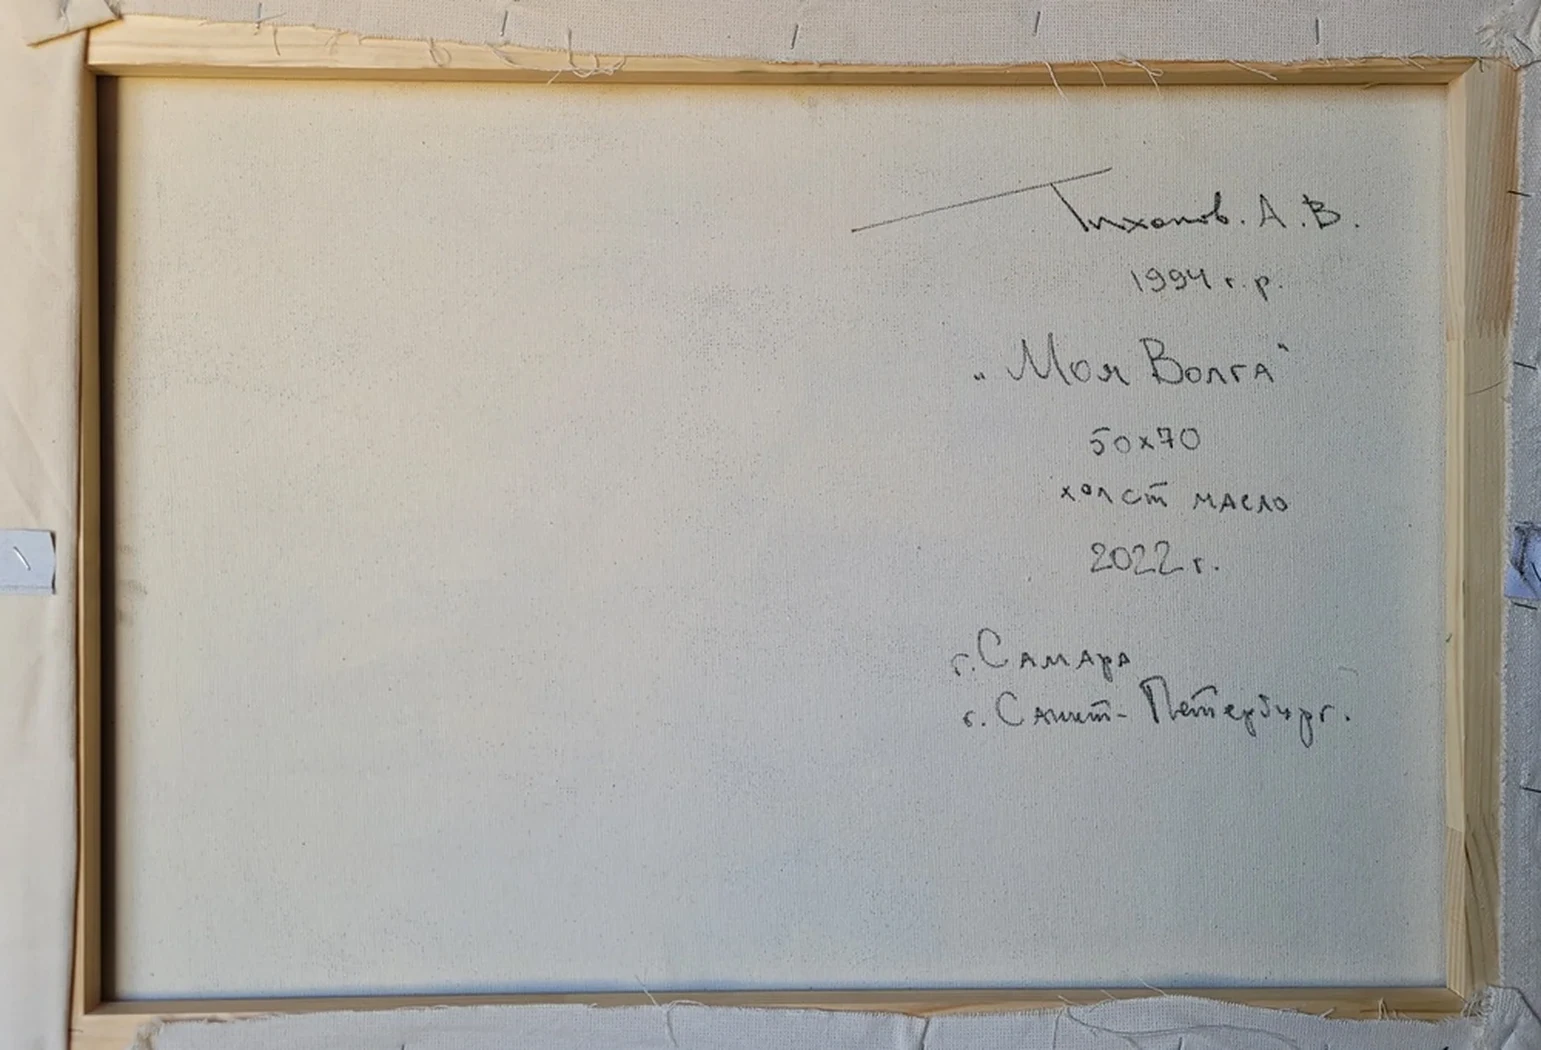 Тихонов. А. В.
1994 г. р.
„Моя Волга“
50х70
холст масло
2022 г.
г. Самара
г. Санкт-Петербург.